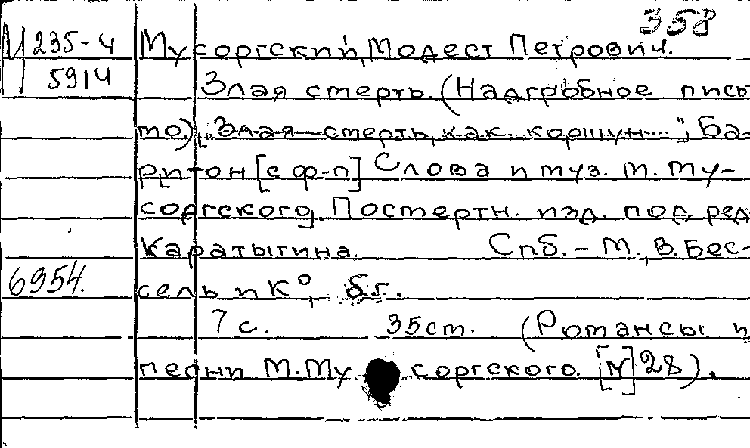 358
М 235-4 Мусоргский, Модест Петрович.
5914 Злая смерть. (Надгробное пись
мо.) „Злая смерть, как коршун...", Ба-
ритон [с ф-п] Слова и муз. М. Му-
соргского. Посмертн. изд. под ред
Каратыгина. Спб. - М., В. Бес-
6954. сель и К°, б.г.
7 с. 35 см. (Романсы и
песни М. Му соргского. [№] 28).